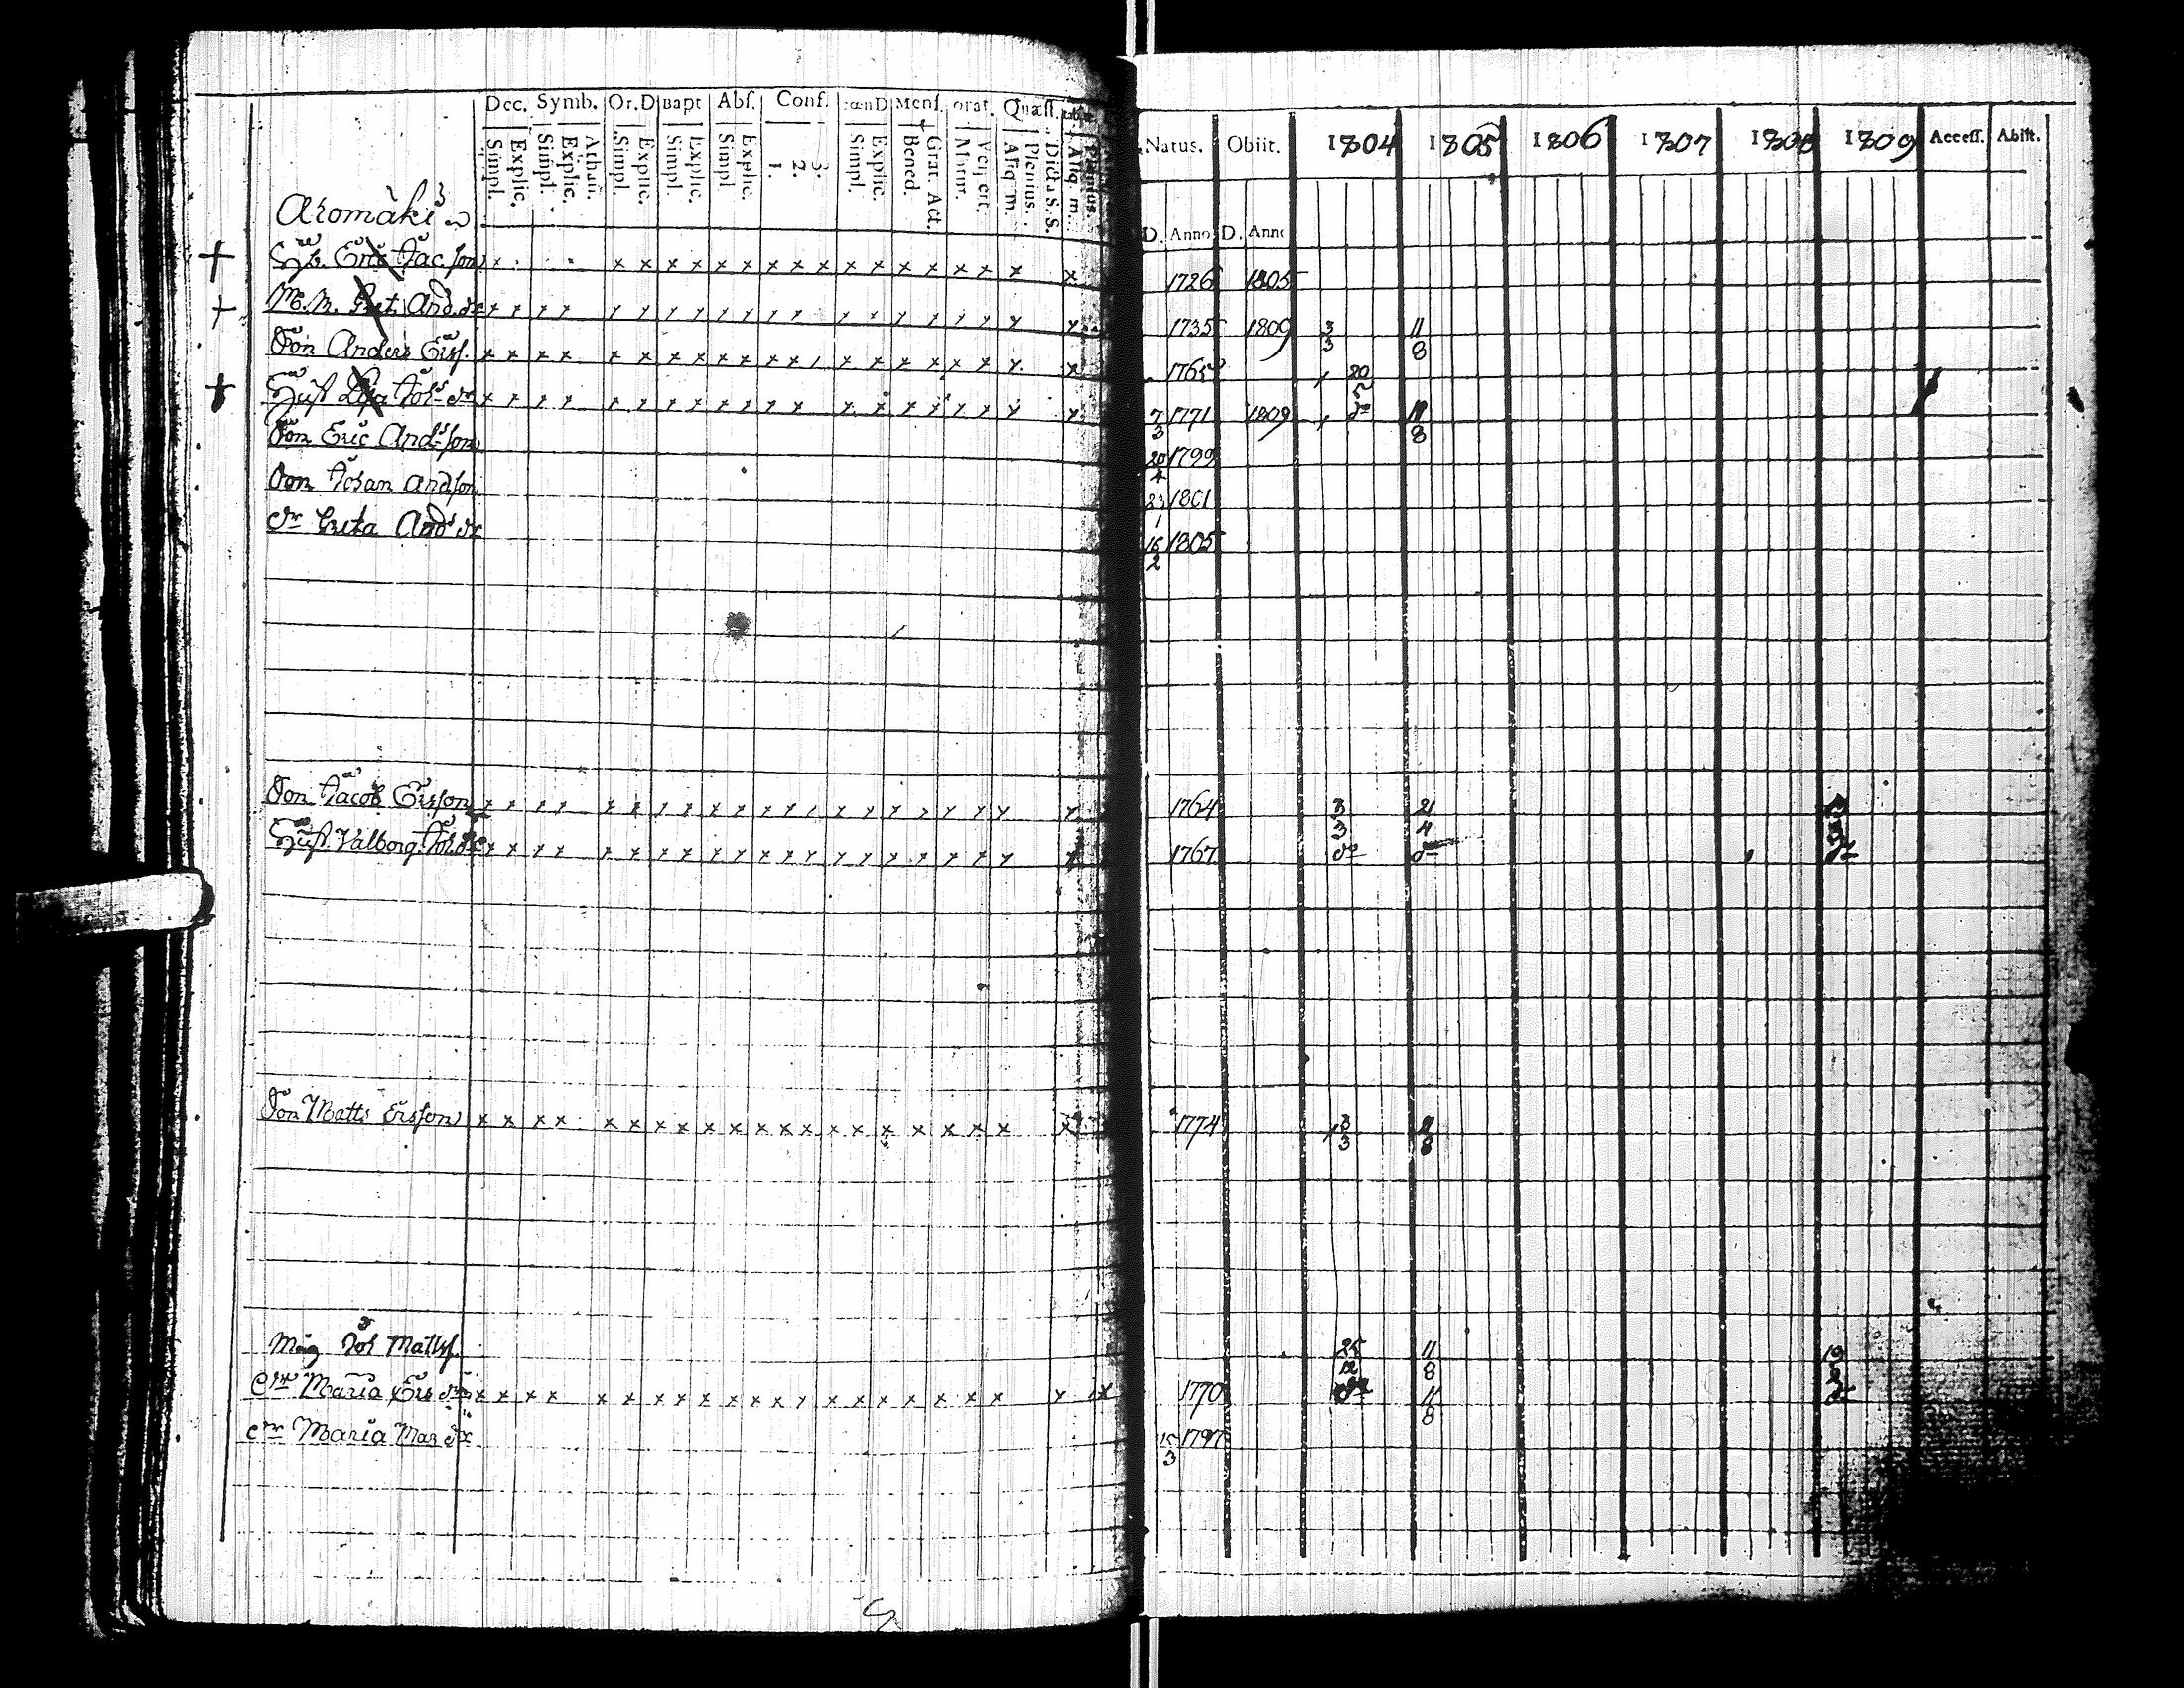 Dec. Symb. Or. D Bapt Abs. Conf. Cœn D Mens. orat. Quæst.
Simpl. Explic. Simpl. Explic. Athan. Simpl. Explic. Simpl. Explic. Simpl. Explic. 1. 2. 3. Simpl. Explic. Bened. Grat. Act. Matut. Vespert. Aliq. m. Plenius. Dicta S. S. Aliq. m. Plenius.
Natus. Obiit. 1804 1805 1806 1807 1808 1809 Access. Abiit.
D. Anno D. Anno
Aromäki
Eric Jac. son x x x x x x x x x x x x x x x x x 1726 1805
And. dr 1735 1809 3 3 11 8
Son Anders Ers. x x x x x x x x x x x x x x x x x x x 1765 20 5
Hust Lisa Joh. dr 7 3 1771 1809 dº 11 8
Son Eric And. son 20 4 1799
Son Johan And.son 23 1 1801
Dr Greta And. dr 16 2 1805
Son Jacob Ersson 1764 3 3 21 4
Hust. Valborg Joh. dr 1767 dº dº
Son Matts Ersson x x x x x x x x x x x x x x x x x x x x 1774 3 3
Måg Joh Matts. 25 12 11 8
Dr Maria Ers dr x x x x x x x x x x x x x x x x x x x x x 1770 11 8
Dr Maria 15 3 1797